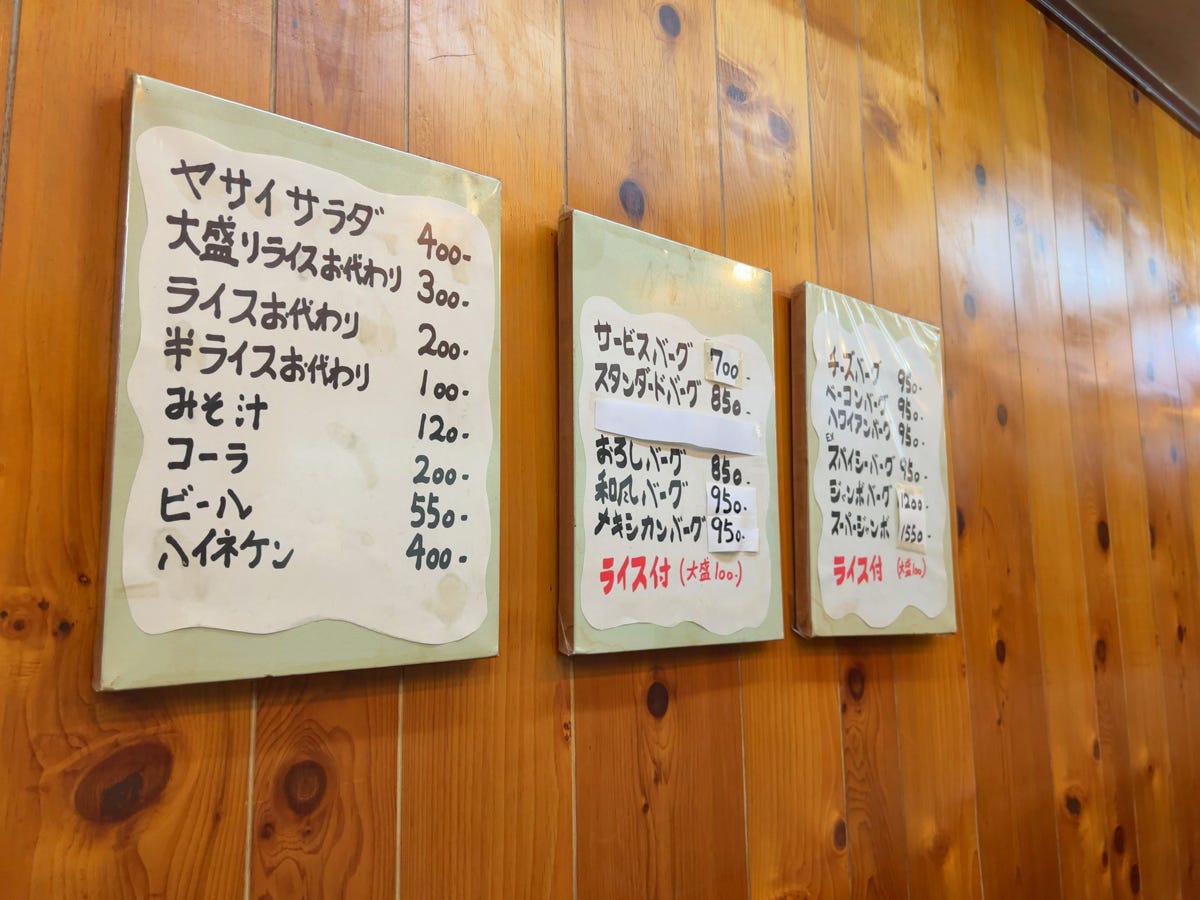 ヤサイサラダ 400-
大盛りライスお代わり 300-
ライスお代わり 200-
半ライスお代わり 100-
みそ汁 120-
コーラ 200-
ビール 550-
ハイネケン 400-
サービスバーグ 700-
スタンダードバーグ 850-
おろしバーグ 850-
和風バーグ 950-
メキシカンバーグ 950-
ライス付 (大盛100-)
チーズバーグ 950-
ベーコンバーグ 950-
ハワイアンバーグ 950-
EX
スパイシーバーグ 950-
ジャンボバーグ 1200-
スーパージャンボ 1550-
ライス付 (大盛100)